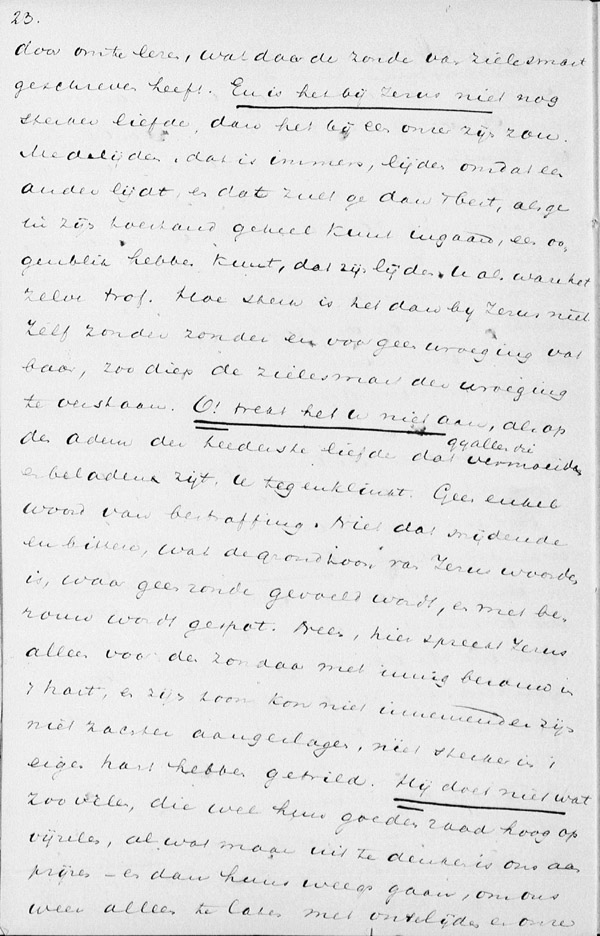 23.
door om te lezen, wat daar de zonde van zielesmart
geschreven heeft. En is het bij Jezus niet nog
sterker liefde, dan het bij een onzer zijn zou.
Medelijden, dat is immers, lijden omdat een
ander lijdt, en dat zult ge dan het best, als ge
in zijn toestand geheel kunt ingaan, een oo-
genblik hebben kunt, dat zijn lijden U als ware het
zelve trof. Hoe sterk is het dan bij Jezus niet
Zelf zonder zonde en voor geen wroeging vat
baar, zoo diep de zielesmart der wroeging
te verstaan. O! trekt het U niet aan, als op
den adem der teederste liefde dat gij allen die
vermoeid en beladen zijt, U tegenklinkt. Geen enkel
woord van bestraffing. Niet dat snijdende
en bittere, wat de grondtoon van Jezus woorden
is, waar geen zonde gevoeld wordt, en met be-
rouw wordt gespot. Neen, hier spreekt Jezus
alleen voor den zondaar met innig berouw in
't hart, en zijn toon kon niet innemender zijn
niet zachter aangeslagen, niet sterker in 't
eigen hart hebben getrild. Hij doet niet wat
zoo velen, die wel hun goeden raad hoog op
vijzelen, al wat maar uit te denken is ons aan
prijzen - en dan huns weegs gaan, om ons
weer alleen te laten met ons lijden en onze